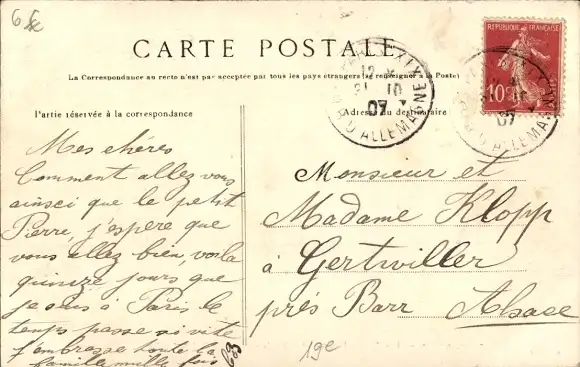 6f
CARTE POSTALE
La Correspondance au recto n'est pas acceptée par tous les pays étrangers (se renseigner à la Poste)
Partie réservée à la correspondance
Adresse du destinataire
REPUBLIQUE FRANÇAISE
10c
XIX
12
31 10
07
D'ALLEMAGNE
07
D'ALLEM
Mes chères
Comment allez vous
ainsci que le petit
Pierre, j'espere que
vous allez bien, voila
quinze jours que
je suis à Paris le
temps passe si vite
j'embrasse toute la
famille mille fois
Monsieur et
Madame Klopp
à Gertwiller
prés Barr Alsace
19e
63